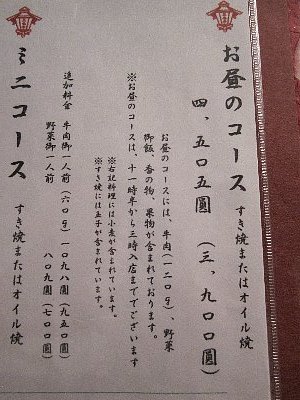 お昼のコース すき焼またはオイル焼
四、五〇五圓 (三、九〇〇圓)
お昼のコースには、牛肉(一二〇g)、野菜
御飯、香の物、菓物が含まれております。
※お昼のコースは、十一時半から三時入店まででございます
※右記料理には小麦が含まれています。
※すき焼には玉子が含まれています。
追加料金 牛肉御一人前(六〇g)一〇九八圓(九五〇圓)
野菜御一人前 八〇九圓(七〇〇圓)
ミニコース すき焼またはオイル焼